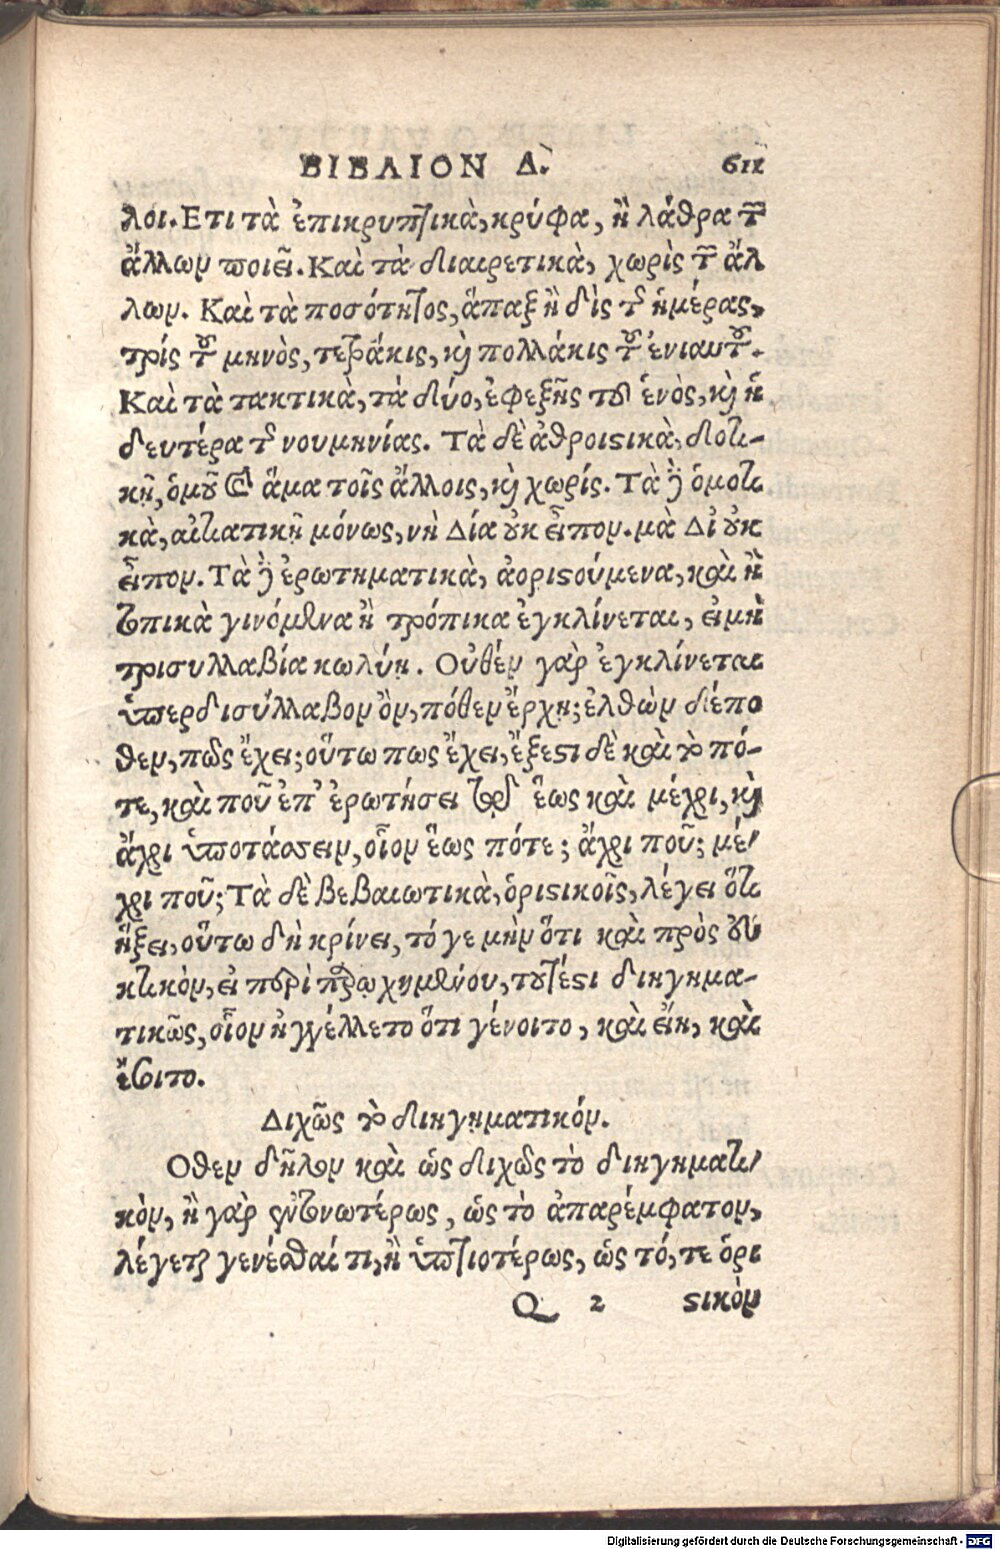 ΒΙΒΛΙΟΝ Δ. 611
λοι. Ετι τὰ ἐπικρυπτικὰ, κρύφα, ἢ λάθρα τῶν
ἄλλων ποιεῖ. Καὶ τὰ διαιρετικὰ, χωρὶς τῶν ἄλ
λων. Καὶ τὰ ποσότητος, ἅπαξ ἢ δὶς τῆς ἡμέρας,
τρίς τοῦ μηνὸς, τετράκις, καὶ πολλάκις τοῦ ἐνιαυτοῦ.
Καὶ τὰ τακτικὰ, τὰ δύο, ἐφεξῆς τοῦ ἑνὸς, καὶ ἡ
δευτέρα τῆς νουμηνίας. Τὰ δὲ ἀθροιστικὰ, δοτι-
κῇ, ὁμοῦ καὶ ἅμα τοῖς ἄλλοις, καὶ χωρίς. Τὰ δὲ ὁμοτι
κὰ, αἰτιατικῇ μόνως, νὴ Δία οὐκ εἶπον. μὰ Δί οὐκ
εἶπον. Τὰ δὲ ἐρωτηματικὰ, ἀοριστούμενα, καὶ ἢ
τοπικὰ γινόμενα ἢ τρόπικα ἐγκλίνεται, εἰ μὴ
τρισυλλαβία κωλύῃ. Οὐθὲν γὰρ ἐγκλίνεται
ὑπερδισύλλαβον ὂν, πόθεν ἔρχῃ; ἐλθὼν δέπο
θεν, πῶς ἔχει; οὕτω πως ἔχει, ἔξεστι δὲ καὶ τὸ πό-
τε, καὶ ποῦ ἐπ' ἐρωτήσει τοῦ ἕως καὶ μέχρι, καὶ
ἄχρι ὑποτάσσειν, οἷον ἕως πότε; ἄχρι ποῦ; μέ-
χρι ποῦ; Τὰ δὲ βεβαιωτικὰ, ὁριστικοῖς, λέγει ὅτι
ἥξει, οὕτω δὴ κρίνει, τό γε μὴν ὅτι καὶ πρὸς εὐ
κτικὸν, εἰ περὶ παρῳχημένου, τουτέστι διηγημα-
τικῶς, οἷον ἠγγέλλετο ὅτι γένοιτο, καὶ εἴη, καὶ
ἔσοιτο.
Διχῶς τὸ διηγηματικόν.
Οθεν δῆλον καὶ ὡς διχῶς τὸ διηγηματι-
κὸν, ἢ γὰρ συντονωτέρως, ὡς τὸ ἀπαρέμφατον,
λέγεται γενέσθαί τι, ἢ ὑπτιοτέρως, ὡς τό, τε ὁρι
Q 2 στικὸν